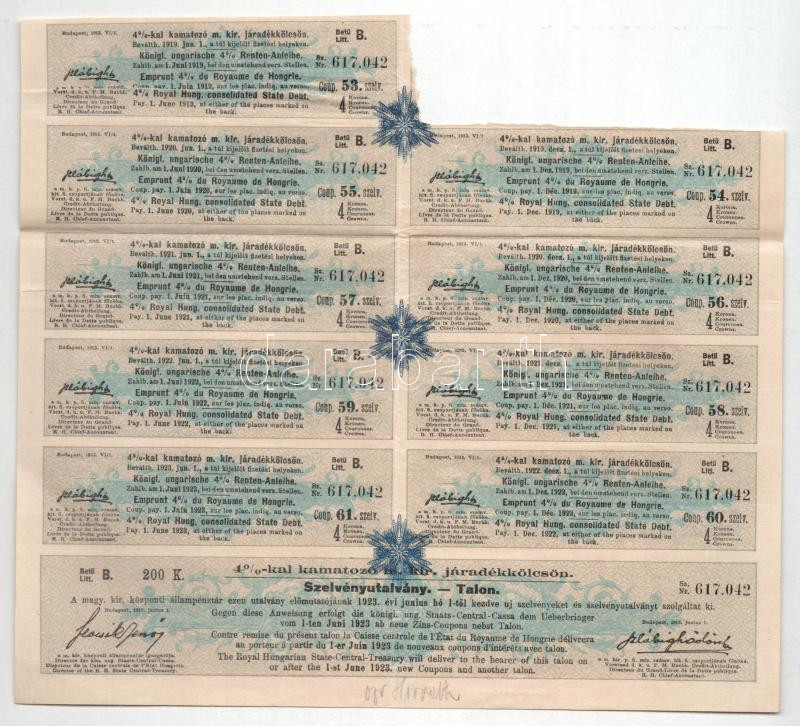 Budapest, 1913. VI/1.
4%-kal kamatozó m. kir. járadékkölcsön.
Beválth. 1919. jun. 1., a túl kijelölt fizetési helyeken.
Königl. ungarische 4% Renten-Anleihe.
Zahlb. am 1. Juni 1919, bei den umstehend verz. Stellen.
Emprunt 4% du Royaume de Hongrie.
Coup. pay. 1. Juin 1919, sur les plac. indiq. au verso.
4% Royal Hung. consolidated State Debt.
Pay. 1. June 1919, at either of the places marked on
the back.
Betü
Litt. B.
Sz.
Nr. 617.042
Coup. 53. szelv.
4 Korona.
Kronen.
Couronnes.
Crowns.
Budapest, 1913. VI/1.
4%-kal kamatozó m. kir. járadékkölcsön.
Beválth. 1920. jun. 1., a túl kijelölt fizetési helyeken.
Königl. ungarische 4% Renten-Anleihe.
Zahlb. am 1. Juni 1920, bei den umstehend verz. Stellen.
Emprunt 4% du Royaume de Hongrie.
Coup. pay. 1. Juin 1920, sur les plac. indiq. au verso.
4% Royal Hung. consolidated State Debt.
Pay. 1. June 1920, at either of the places marked on
the back.
Betü
Litt. B.
Sz.
Nr. 617.042
Coup. 55. szelv.
4 Korona.
Kronen.
Couronnes.
Crowns.
Budapest, 1913. VI/1
4%-kal kamatozó m. kir. járadékkölcsön.
Beválth. 1919. decz. 1., a túl kijelölt fizetési helyeken.
Königl. ungarische 4% Renten-Anleihe.
Zahlb. am 1. Dez. 1919, bei den umstehend verz. Stellen.
Emprunt 4% du Royaume de Hongrie.
Coup. pay. 1. Déc. 1919, sur les plac. indiq. au verso.
4% Royal Hung. consolidated State Debt.
Pay. 1. Dec. 1919, at either of the places marked on
the back.
Betü
Litt. B.
Sz.
Nr. 617.042
Coup. 54. szelv.
4 Korona.
Kronen.
Couronnes.
Crowns.
Budapest, 1913. VI/1.
4%-kal kamatozó m. kir. járadékkölcsön.
Beválth. 1921. jun. 1., a túl kijelölt fizetési helyeken.
Königl. ungarische 4% Renten-Anleihe.
Zahlb. am 1. Juni 1921, bei den umstehend verz. Stellen.
Emprunt 4% du Royaume de Hongrie.
Coup. pay. 1. Juin 1921, sur les plac. indiq. au verso.
4% Royal Hung. consolidated State Debt.
Pay. 1. June 1921, at either of the places marked on
the back.
Betü
Litt. B.
Sz.
Nr. 617.042
Coup. 57. szelv.
4 Korona.
Kronen.
Couronnes.
Crowns.
Budapest, 1913. VI/1.
4%-kal kamatozó m. kir. járadékkölcsön.
Beválth. 1920. decz. 1., a túl kijelölt fizetési helyeken.
Königl. ungarische 4% Renten-Anleihe.
Zahlb. am 1. Dez. 1920, bei den umstehend verz. Stellen.
Emprunt 4% du Royaume de Hongrie.
Coup. pay. 1. Déc. 1920, sur les plac. indiq. au verso.
4% Royal Hung. consolidated State Debt.
Pay. 1. Dec. 1920, at either of the places marked on
the back.
Betü
Litt. B.
Sz.
Nr. 617.042
Coup. 56. szelv.
4 Korona.
Kronen.
Couronnes.
Crowns.
Budapest, 1913. VI/1.
4%-kal kamatozó m. kir. járadékkölcsön.
Beválth. 1922. jun. 1., a túl kijelölt fizetési helyeken.
Königl. ungarische 4% Renten-Anleihe.
Zahlb. am 1. Juni 1922, bei den umstehend verz. Stellen.
Emprunt 4% du Royaume de Hongrie.
Coup. pay. 1. Juin 1922, sur les plac. indiq. au verso.
4% Royal Hung. consolidated State Debt.
Pay. 1. June 1922, at either of the places marked on
the back.
Betü
Litt. B.
Sz.
Nr. 617.042
Coup. 59. szelv.
4 Korona.
Kronen.
Couronnes.
Crowns.
Budapest, 1913. VI/1.
4%-kal kamatozó m. kir. járadékkölcsön.
Beválth. 1921. decz. 1., a túl kijelölt fizetési helyeken.
Königl. ungarische 4% Renten-Anleihe.
Zahlb. am 1. Dez. 1921, bei den umstehend verz. Stellen.
Emprunt 4% du Royaume de Hongrie.
Coup. pay. 1. Déc. 1921, sur les plac. indiq. au verso.
4% Royal Hung. consolidated State Debt.
Pay. 1. Dec. 1921, at either of the places marked on
the back.
Betü
Litt. B.
Sz.
Nr. 617.042
Coup. 58. szelv.
4 Korona.
Kronen.
Couronnes.
Crowns.
darabanth
Budapest, 1913. VI/1.
4%-kal kamatozó m. kir. járadékkölcsön.
Beválth. 1923. jun. 1., a túl kijelölt fizetési helyeken.
Königl. ungarische 4% Renten-Anleihe.
Zahlb. am 1. Juni 1923, bei den umstehend verz. Stellen.
Emprunt 4% du Royaume de Hongrie.
Coup. pay. 1. Juin 1923, sur les plac. indiq. au verso.
4% Royal Hung. consolidated State Debt.
Pay. 1. June 1923, at either of the places marked on
the back.
Betü
Litt. B.
Sz.
Nr. 617.042
Coup. 61. szelv.
4 Korona.
Kronen.
Couronnes.
Crowns.
Budapest, 1913. VI/1.
4%-kal kamatozó m. kir. járadékkölcsön.
Beválth. 1922. decz. 1., a túl kijelölt fizetési helyeken.
Königl. ungarische 4% Renten-Anleihe.
Zahlb. am 1. Dez. 1922, bei den umstehend verz. Stellen.
Emprunt 4% du Royaume de Hongrie.
Coup. pay. 1. Déc. 1922, sur les plac. indiq. au verso.
4% Royal Hung. consolidated State Debt.
Pay. 1. Dec. 1922, at either of the places marked on
the back.
Betü
Litt. B.
Sz.
Nr. 617.042
Coup. 60. szelv.
4 Korona.
Kronen.
Couronnes.
Crowns.
Betü
Litt. B. 200 K.
4%-kal kamatozó m. kir. járadékkölcsön.
Sz.
Nr. 617.042
Szelvényutalvány. — Talon.
A magy. kir. központi állampénztár ezen utalvány előmutatójának 1923. évi junius hó 1-től kezdve uj szelvényeket és szelvényutalványt szolgáltat ki.
Gegen diese Anweisung erfolgt die königl. ung. Staats-Central-Cassa dem Ueberbringer
vom 1-ten Juni 1923 ab neue Zins-Coupons nebst Talon.
Contre remise du présent talon la Caisse centrale de l'État du Royaume de Hongrie délivrera
au porteur à partir du 1-er Juin 1923 de nouveaux coupons d'intérêts avec talon.
The Royal Hungarian State-Central-Treasury will deliver to the bearer of this talon on
or after the 1-st June 1923, new Coupons and another talon.
Budapest, 1913. junius 1.
Budapest, 1913. junius 1.